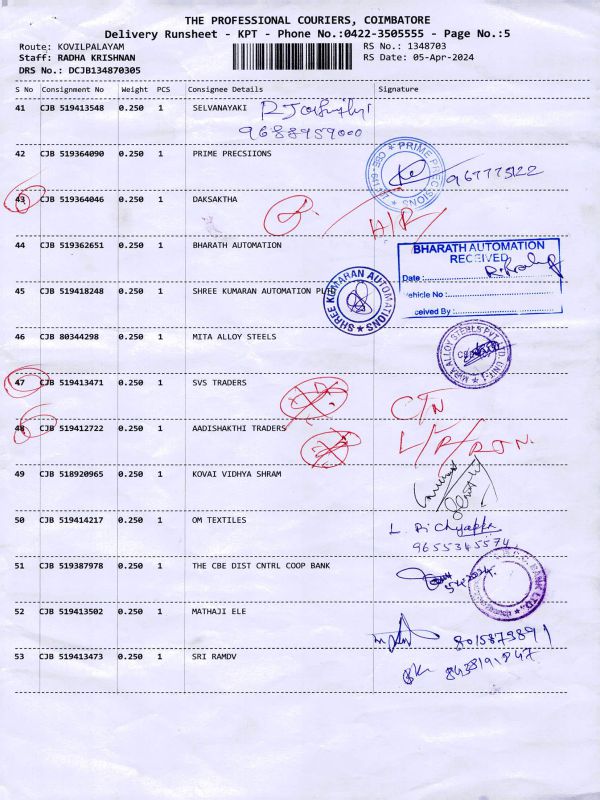 THE PROFESSIONAL COURIERS, COIMBATORE
Delivery Runsheet - KPT - Phone No.:0422-3505555 - Page No.:5
Route: KOVILPALAYAM RS No.: 1348703
Staff: RADHA KRISHNAN RS Date: 05-Apr-2024
DRS No.: DCJB134870305
S No Consignment No Weight PCS Consignee Details Signature
41 CJB 519413548 0.250 1 SELVANAYAKI
9688959000
42 CJB 519364090 0.250 1 PRIME PRECSIIONS
PRIME PRECISIONS
43 CJB 519364046 0.250 1 DAKSAKTHA
44 CJB 519362651 0.250 1 BHARATH AUTOMATION
BHARATH AUTOMATION
RECEIVED
Date :
ehicle No :
ceived By :
45 CJB 519418248 0.250 1 SHREE KUMARAN AUTOMATION
SHREE KUMARAN AUTOMATIONS
46 CJB 80344298 0.250 1 MITA ALLOY STEELS
47 CJB 519413471 0.250 1 SVS TRADERS
CTN
48 CJB 519412722 0.250 1 AADISHAKTHI TRADERS
49 CJB 518920965 0.250 1 KOVAI VIDHYA SHRAM
50 CJB 519414217 0.250 1 OM TEXTILES
9655345574
51 CJB 519387978 0.250 1 THE CBE DIST CNTRL COOP BANK
52 CJB 519413502 0.250 1 MATHAJI ELE
8015873891
53 CJB 519413473 0.250 1 SRI RAMDV